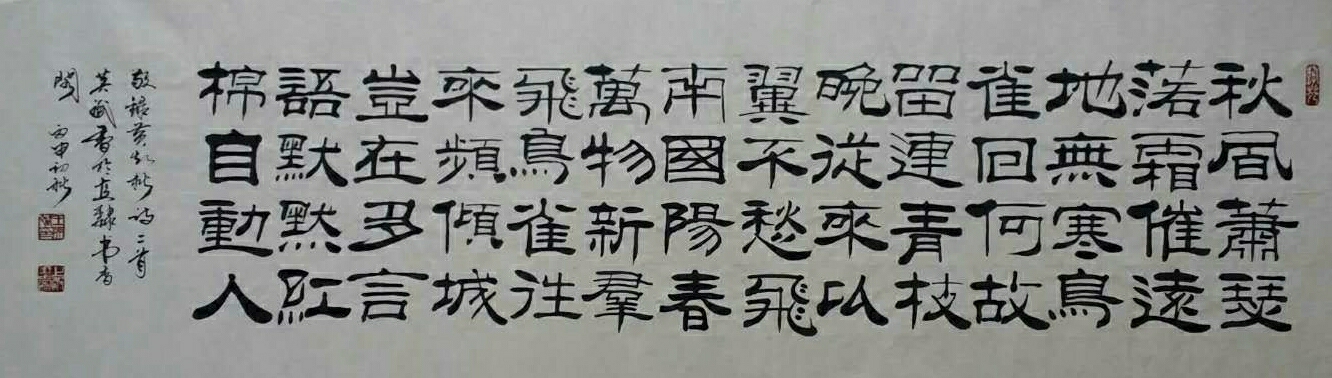 秋風蕭瑟
落霜催遠
地無寒鳥
雀回何故
留連青枝
晚從來以
翼不愁飛
南國陽春
萬物新羣
飛鳥雀往
來頻傾城
豈在多言
語默默紅
棉自動人
敬錄黃知秋詩二首
英武書於直隸書香
閣 丙申初秋